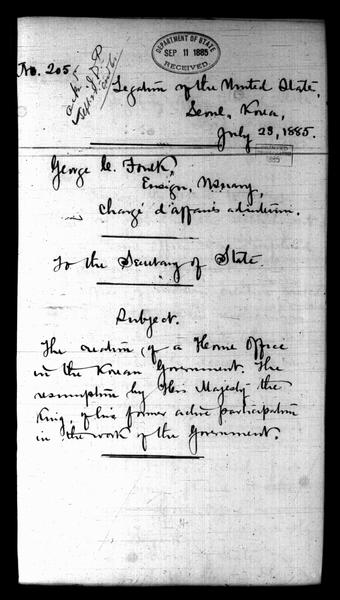 DEPARTMENT OF STATE
SEP 11 1885
RECEIVED
No. 205
Legation of the United States,
Seoul, Korea,
July 23, 1885.
George C. Foulk,
Ensign, U.S. Navy,
Chargé d'affaires ad interim.
To the Secretary of State.
Subject.
The creation of a Home Office
in the Korean Government. The
resumption by His Majesty the
King, of his former active participation
in the work of the Government.